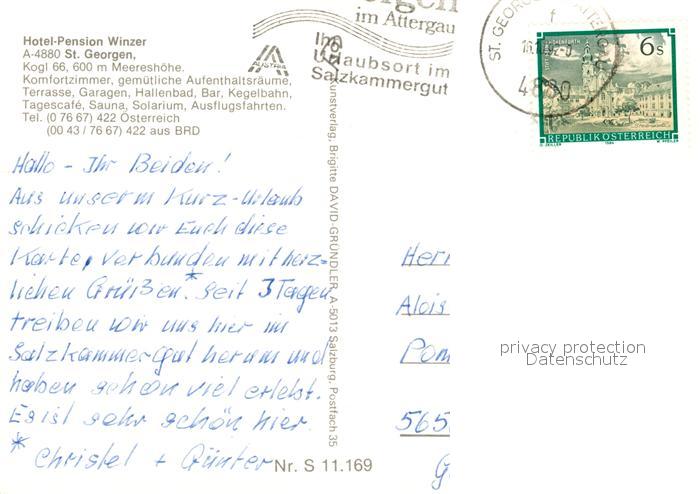 Hotel-Pension Winzer
A-4880 St. Georgen,
Kogl 66, 600 m Meereshöhe.
Komfortzimmer, gemütliche Aufenthaltsräume,
Terrasse, Garagen, Hallenbad, Bar, Kegelbahn,
Tagescafé, Sauna, Solarium, Ausflugsfahrten.
Tel. (0 76 67) 422 Österreich
(00 43 / 76 67) 422 aus BRD
im Attergau
AUSTRIA
Ihr
Urlaubsort im
Salzkammergut
ST. GEORGEN
4880
6s
REPUBLIK ÖSTERREICH
Hallo - Ihr Beiden!
Aus unserm Kurz-Urlaub
schicken wir Euch diese
Karte, verbunden mit herz-
lichen Grüßen.* Seit 3 Tagen
treiben wir uns hier im
Salzkammergut herum und
haben schon viel erlebt.
Es ist sehr schön hier.
* Christel + Günter
Kunstverlag, Brigitte DAVID-GRÜNDLER, A-5013 Salzburg, Postfach 35
Nr. S 11.169
Herr
Alois
Pom
565
privacy protection
Datenschutz